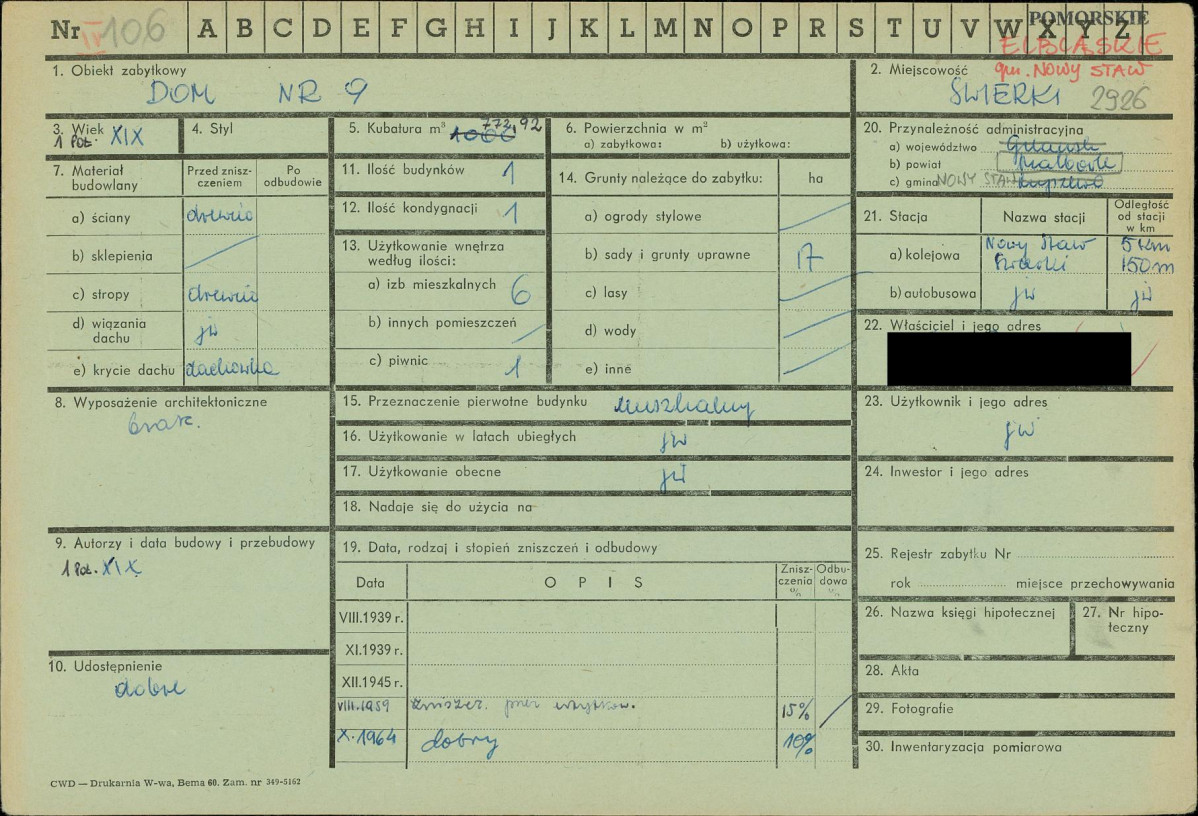 Nr II 106 A B C D E F G H I J K L M N O P R S T U V W X Y Z
POMORSKIE
ELBLĄSKIE
gm. NOWY STAW
1. Obiekt zabytkowy
DOM NR 9
2. Miejscowość
ŚWIERKI 2926
3. Wiek
1 poł. XIX
4. Styl
5. Kubatura m³ 1000 772,92
6. Powierzchnia w m²
a) zabytkowa: b) użytkowa:
20. Przynależność administracyjna
a) województwo Gdańsk
b) powiat Malbork
c) gmina NOWY STAW
7. Materiał budowlany
Przed znisz-
czeniem
Po
odbudowie
a) ściany drewno
b) sklepienia
c) stropy drewno
d) wiązania
dachu jw
e) krycie dachu dachówka
11. Ilość budynków 1
12. Ilość kondygnacji 1
13. Użytkowanie wnętrza
według ilości:
a) izb mieszkalnych 6
b) innych pomieszczeń
c) piwnic 1
14. Grunty należące do zabytku: ha
a) ogrody stylowe
b) sady i grunty uprawne 17
c) lasy
d) wody
e) inne
21. Stacja Nazwa stacji
Odległość
od stacji
w km
a) kolejowa Nowy Staw 5 km
Świerki 150 m
b) autobusowa jw jw
22. Właściciel i jego adres
8. Wyposażenie architektoniczne
brak.
15. Przeznaczenie pierwotne budynku mieszkalny
16. Użytkowanie w latach ubiegłych jw
17. Użytkowanie obecne jw
18. Nadaje się do użycia na
23. Użytkownik i jego adres
jw
24. Inwestor i jego adres
9. Autorzy i data budowy i przebudowy
1 poł. XIX
19. Data, rodzaj i stopień zniszczeń i odbudowy
Data OPIS
Znisz-
czenia
%
Odbu-
dowa
%
VIII.1939 r.
XI.1939 r.
XII.1945 r.
VIII.1959 zniszcz. przez użytkow. 15%
X.1964 dobry 10%
25. Rejestr zabytku Nr
rok miejsce przechowywania
26. Nazwa księgi hipotecznej
27. Nr hipo-
teczny
10. Udostępnienie
dobre
28. Akta
29. Fotografie
30. Inwentaryzacja pomiarowa
CWD — Drukarnia W-wa, Bema 60. Zam. nr 349-5162